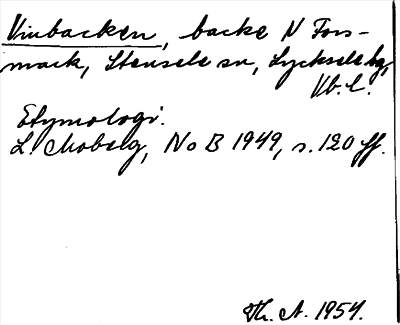 Vinbacken, backe N Fors-
mark, Stensele sn, Lycksele lg,
Vb. l.
Etymologi.
L. Moberg, NoB 1949, s. 120 ff.
Th. A. 1954.